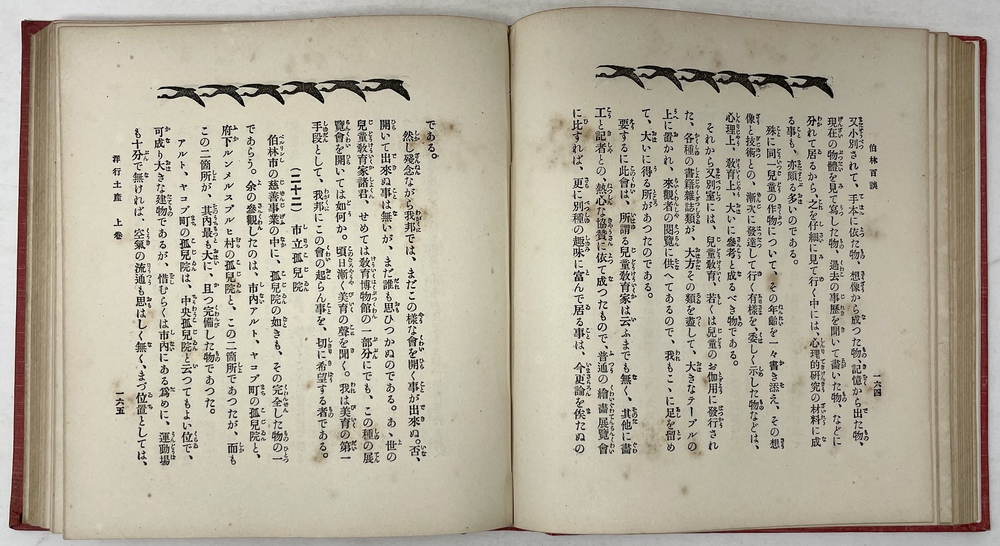 伯林百談
一六四
又小別されて、手本に依た物、想像から成つた物、記憶から出た物、
現在の物體を見て寫した物、過去の事歷を聞いて畵いた物、などに
分れて居るから、之を仔細に見て行く中には、心理的研究の材料に成
る事も、亦頗る多いのである。
殊に同一兒童の作物について、その年齡を一々書き添え、その想
像と技術との、漸次に發達して行く有樣を、委しく示した物などは、
心理上、敎育上、大いに參考と成るべき物である。
それから又別室には、兒童敎育、若くは兒童のお伽用に發行され
た、各種の書籍雜誌類が、大方その類を盡して、大きなテーブルの
上に置かれ、來觀者の閱覽に供へてあるので、我もこゝに足を留め
て、大いに得る所があつたのである。
要するに此會は、所謂る兒童敎育家は云ふまでも無く、其他に畵
工と記者との、熱心な協贊に依て成つたもので、普通の繪畵展覽會
に比すれば、更に別種の趣味に富んで居る事は、今更論を俟たぬの
である。
然し殘念ながら我邦では、まだこの樣な會を開く事が出來ぬ。否、
開いて出來ぬ事は無いが、まだ誰も思ひつかぬのである。あゝ世の
兒童敎育家諸君、せめては敎育博物館の一部分にでも、この種の展
覽會を開いては如何か。頃日漸く美育の聲を聞く。我は美育の第一
手段として、我邦にこの會の起らん事を、切に希望する者である。
(二十二) 市立孤兒院
伯林市の慈善事業の中に、孤兒院の如きも、その完全した物の一
であらう。余の參觀したのは、市內アルト、ヤコブ町の孤兒院と、
府下ルンメルスブルヒ村の孤兒院と、この二箇所であつたが、而も
この二箇所が、其內最も大に、且つ完備した物であつた。
アルト、ヤコブ町の孤兒院は、中央孤兒院と云つてもよい位で、
可成り大きな建物であるが、惜むらくは市內にある爲めに、運動場
も十分で無ければ、空氣の流通も思はしく無く、まづ位置としては、
洋行土產 上卷
一六五